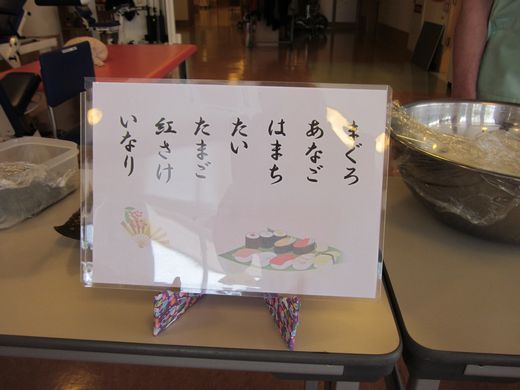 まぐろ
あなご
はまち
たい
たまご
紅さけ
いなり